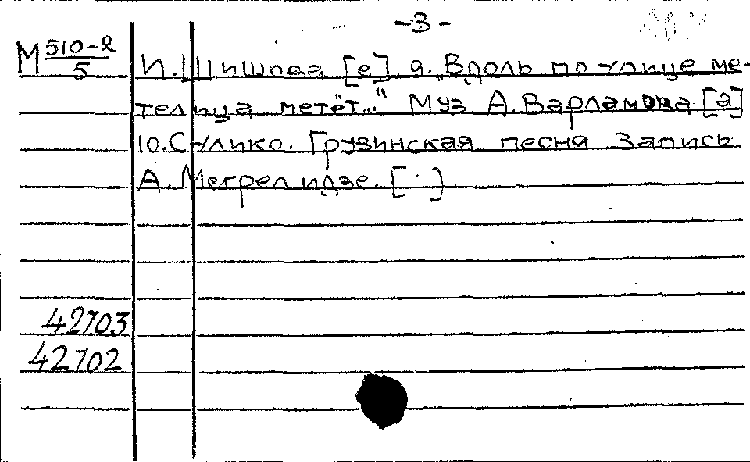 -3-
М 510-2/5
И. Шишова [е] 9. „Вдоль по улице ме-
телица метёт..." Муз А. Варламова [а]
10. Сулико. Грузинская песня Запись
А. Мегрелидзе. [·]
42703
42702